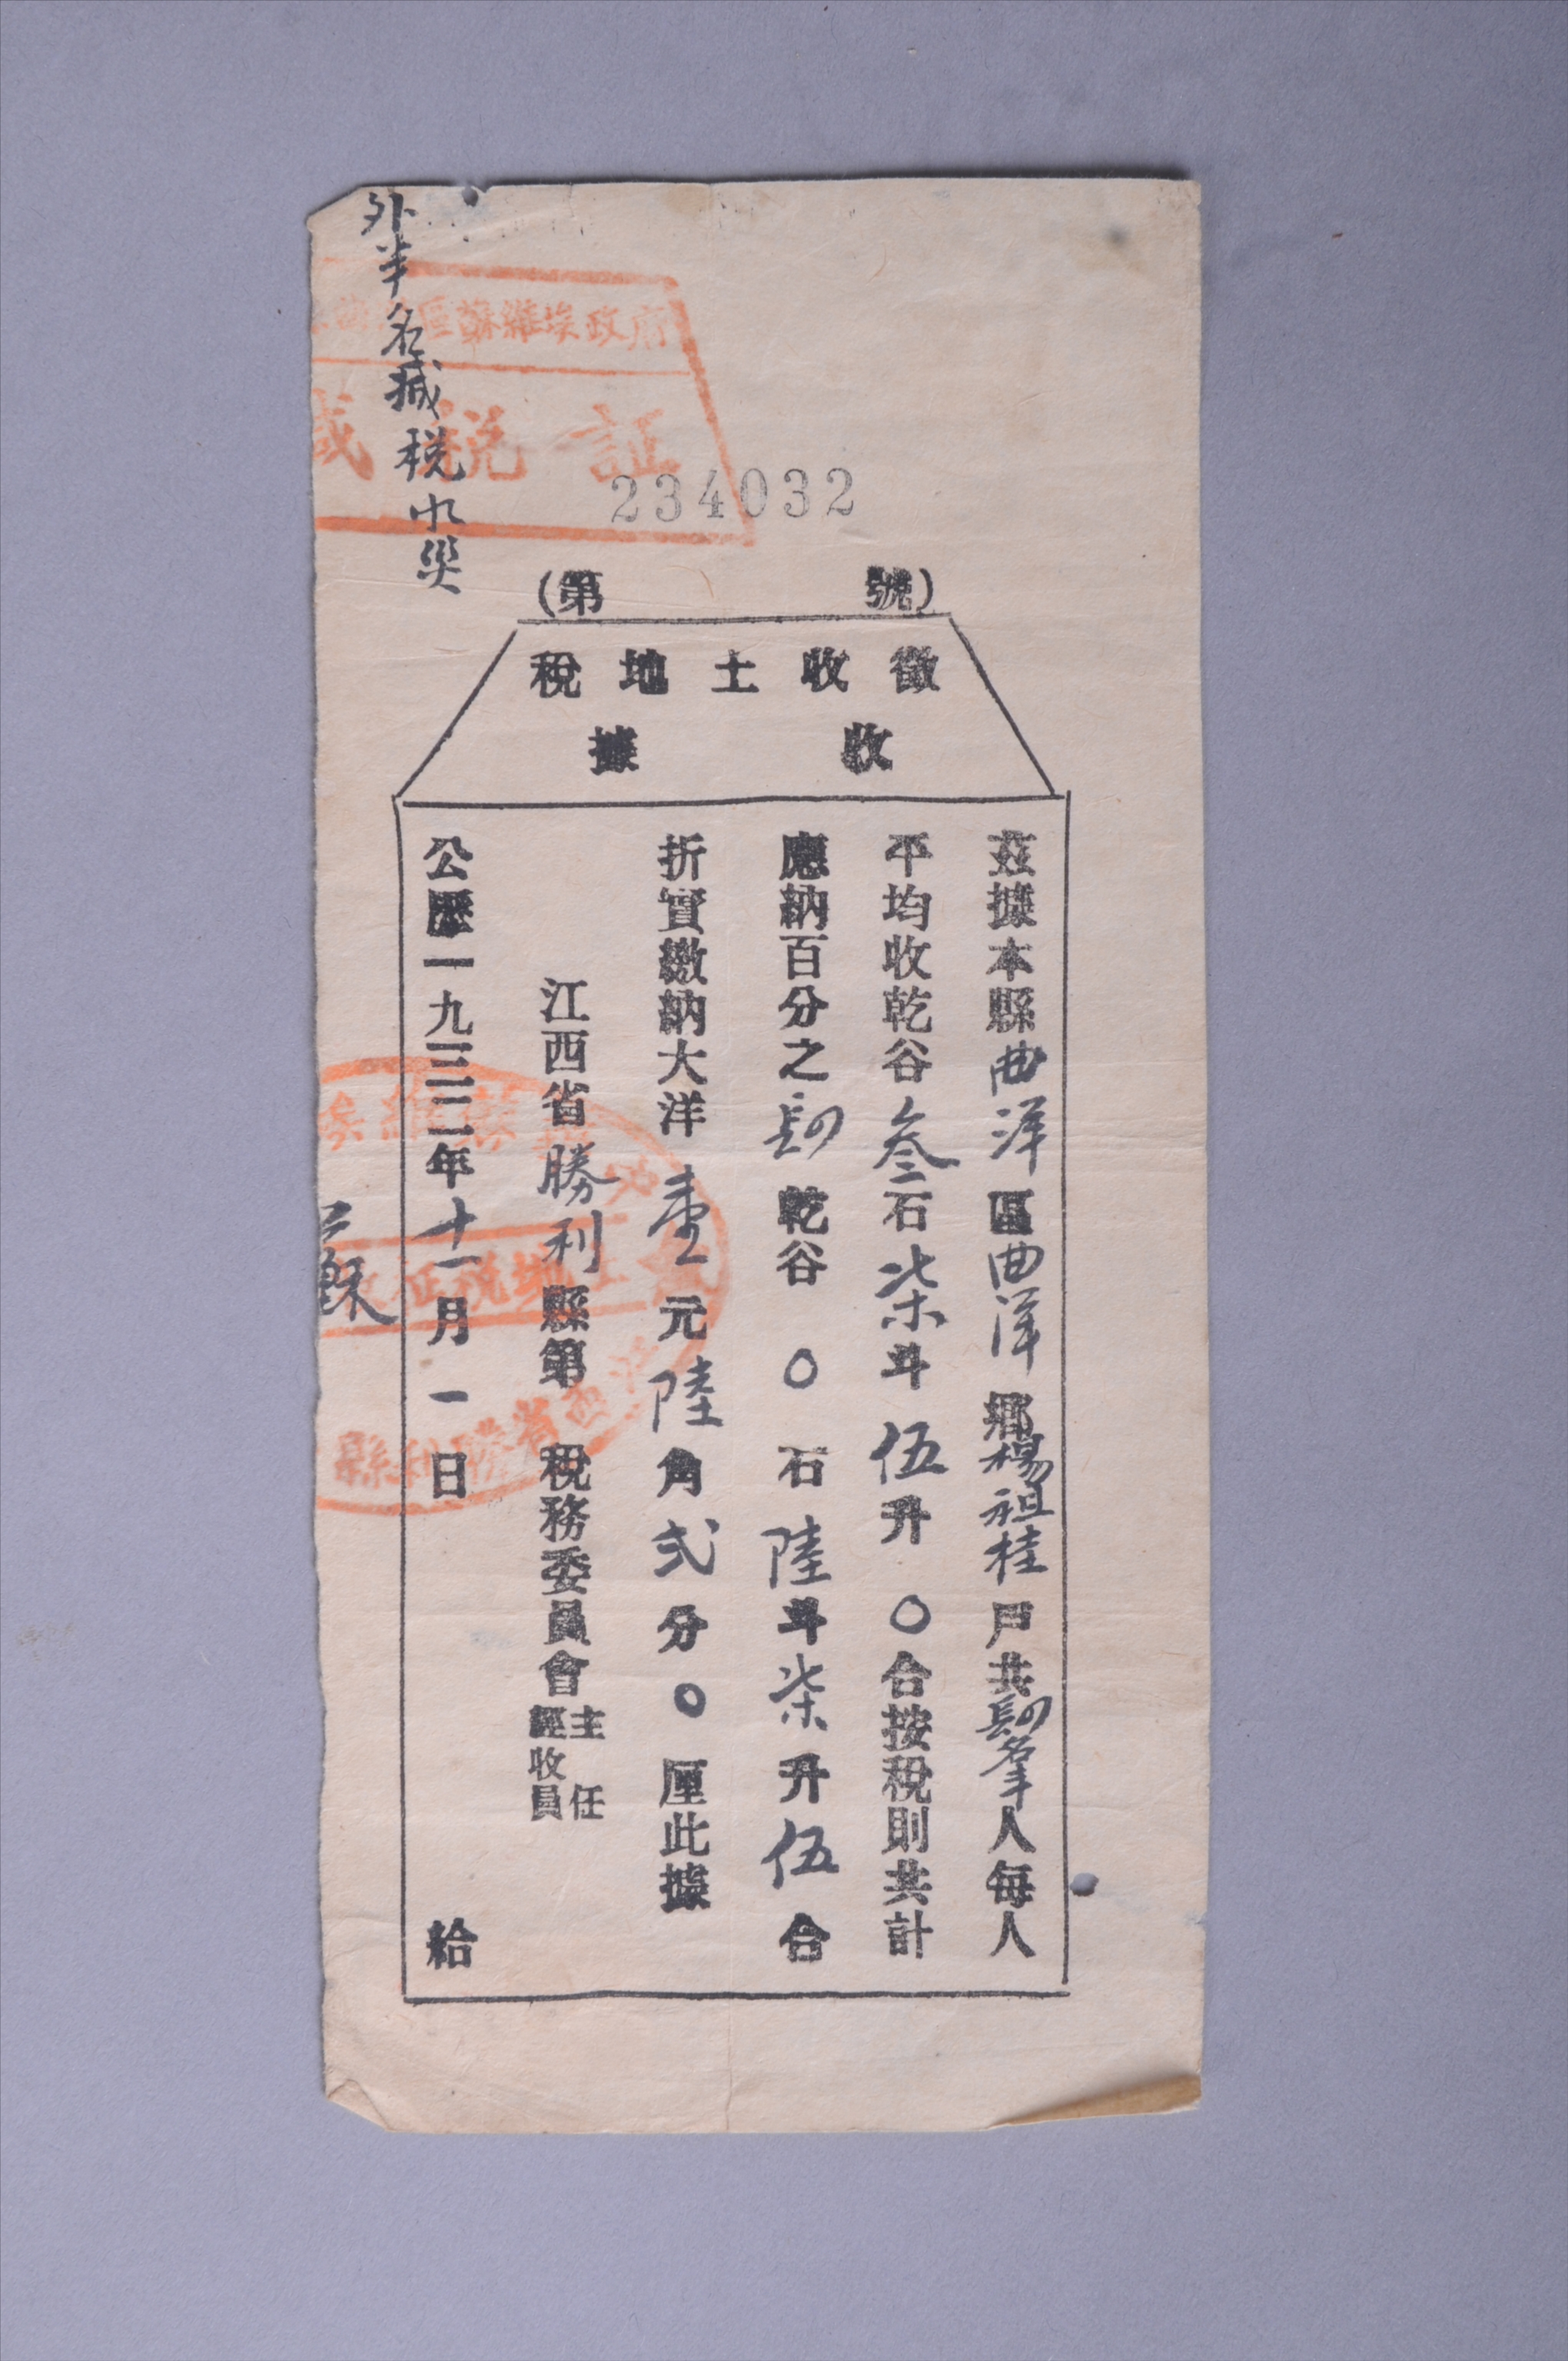 外半名減税水災
區蘇維埃政府
減税証
234032
(第 號)
徵收土地稅
收據
茲據本縣曲洋區曲洋鄉楊祖桂戶共肆名半人每人
平均收乾谷叁石柒斗伍升〇合按稅則共計
應納百分之肆乾谷〇石陸斗柒升伍合
折實繳納大洋壹元陸角弍分〇厘此據
江西省勝利縣第 稅務委員會
主任
經收員
公曆一九三二年十一月一日 給
江西省勝利縣